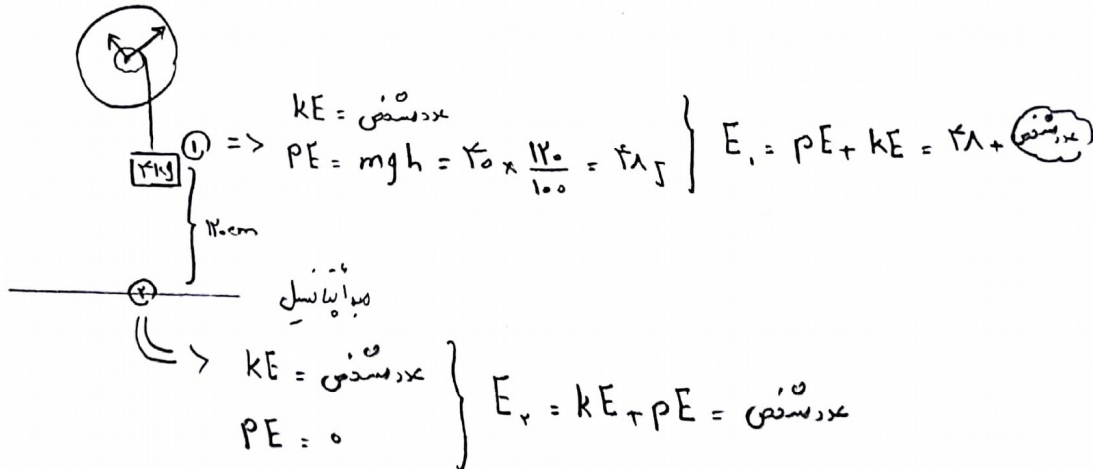 ۴kg
① =>
kE = عدد مشخص
PE = mgh = ۴۰ × ۱۲۰/۱۰۰ = ۴۸ J
E۱ = PE + kE = ۴۸ + عدد مشخص
۱۲۰cm
② مبدأ پتانسیل
kE = عدد مشخص
PE = ۰
E۲ = kE + PE = عدد مشخص